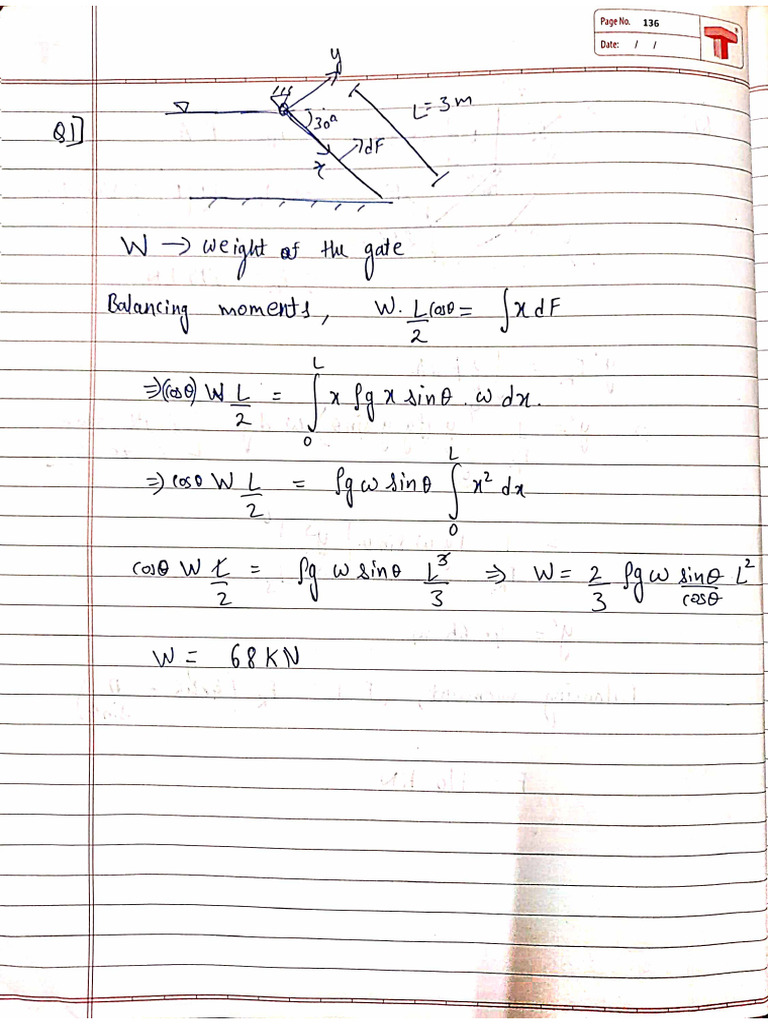 Page No. 136
Date: / /
T
Q1]
y
30°
L = 3 m
dF
x
W → weight of the gate
Balancing moments, W. L/2 cosθ = ∫ x dF
⇒ (cosθ) W L/2 = ∫₀ᴸ x ρg x sinθ . ω dx.
⇒ cosθ W L/2 = ρg ω sinθ ∫₀ᴸ x² dx
cosθ W L/2 = ρg ω sinθ L³/3 ⇒ W = 2/3 ρg ω sinθ/cosθ L²
W = 68 KN